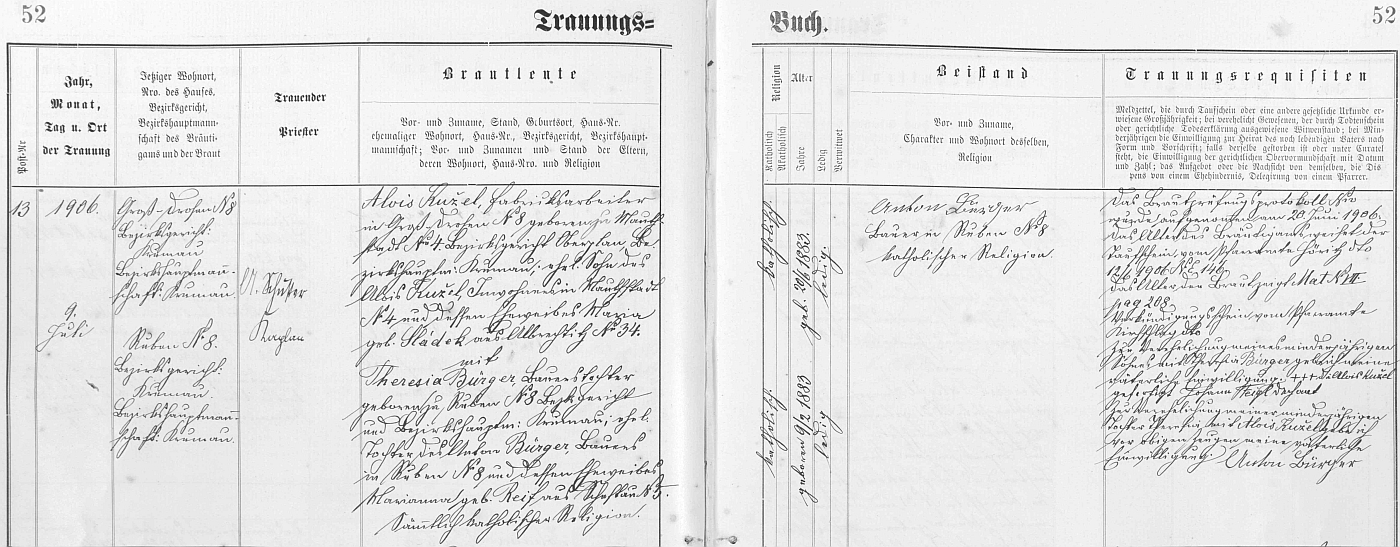 52
Trauungs=
Buch.
52
Post-Nr
Jahr,
Monat,
Tag u. Ort
der Trauung
Jetziger Wohnort,
Nro. des Hauses,
Bezirksgericht,
Bezirkshauptmann-
schaft des Bräuti-
gams und der Braut
Trauender
Priester
Brautleute
Vor- und Zuname, Stand, Geburtsort, Haus-Nr.
ehemaliger Wohnort, Haus-Nr., Bezirksgericht, Bezirkshaupt-
mannschaft; Vor- und Zunamen und Stand der Eltern,
deren Wohnort, Haus-Nro. und Religion
Religion
Katholisch
Akatholisch
Alter
Jahre
Ledig
Verwitwet
Beistand
Vor- und Zuname,
Charakter und Wohnort desselben,
Religion
Trauungsrequisiten
Meldzettel, die durch Taufschein oder eine andere gesetzliche Urkunde er-
wiesene Großjährigkeit; bei verehelicht Gewesenen, der durch Todtenschein
oder gerichtliche Todeserklärung ausgewiesene Witwenstand; bei Min-
derjährigen die Einwilligung zur Heirat des noch lebendigen Vaters nach
Form und Vorschrift; falls derselbe gestorben ist oder unter Curatel
steht, die Einwilligung der gerichtlichen Obervormundschaft mit Datum
und Zahl; das Aufgebot oder die Nachsicht von demselben, die Dis
pens von einem Ehehindernis, Delegirung von einem Pfarrer.
13
1906.
9.
Juli
Groß-Drossen N 8
Bezirksgericht:
Krumau
Bezirkshauptmann-
schaft: Krumau.
Ruben N° 8.
Bezirksgericht:
Krumau.
Bezirkshauptmann-
schaft: Krumau.
Schuster
Kaplan
Alois Kužel, Fabriksarbeiter
in Groß-Drossen N° 8 geboren zu Mauth-
stadt N° 4 Bezirksgericht Oberplan, Be-
zirkshauptm: Krumau; ehel. Sohn des
Alois Kužel, Inwohners in Mauthstadt
N° 4 und dessen Eheweibes Maria
geb. Sladek aus Albrechtitz N° 34.
mit
Theresia Bürger, Bauerstochter
geboren zu Ruben N° 8 Bezksgericht
und Bezirkshauptm: Krumau; ehel.
Tochter des Anton Bürger, Bauers
in Ruben N° 8 und dessen Eheweibes
Marianna geb. Reif aus N° 5.
Sämmtlich katholischer Religion.
katholisch
geb. 20/6 1883.
ledig.
katholisch
geboren 9/2 1883
ledig
Anton Bürger
Bauer in Ruben N° 8
katholischer Religion.
Das Brautprüfungsprotokoll
wurde aufgenommen am 20. Juni 1906.
Das Alter des Bräutigams weiset der
Taufschein vom Pfarramte Höritz dto
12/6 1906 N° E. 146
Das Alter der Braut zeigt Mat N° VII
pag 208.
Verkündigungsschein vom Pfarramte
Kirchschlag dto
Zur Verehelichung meines minderjährigen
Sohnes mit Theresia Bürger gebe ich meine
väterliche Einwilligung: +++ Alois Kužel
gefertigt Johann
Zur Verehelichung meiner minderjährigen
Tochter Theresia mit Alois Kužel gebe ich
vor obigen Zeugen meine väterliche
Einwilligung: Anton Bürger